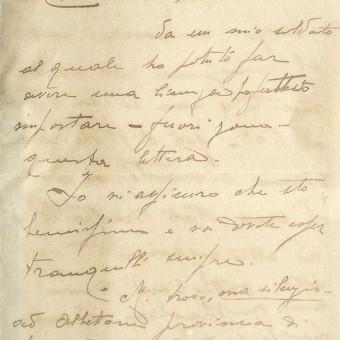 da un mio soldato
al quale ho potuto far
avere una licenza
impostare - fuori zona -
questa lettera.
Io vi assicuro che sto
benissimo e voi dovete esser
tranquilli sempre.
Mi trovo, ora
ad provincia di